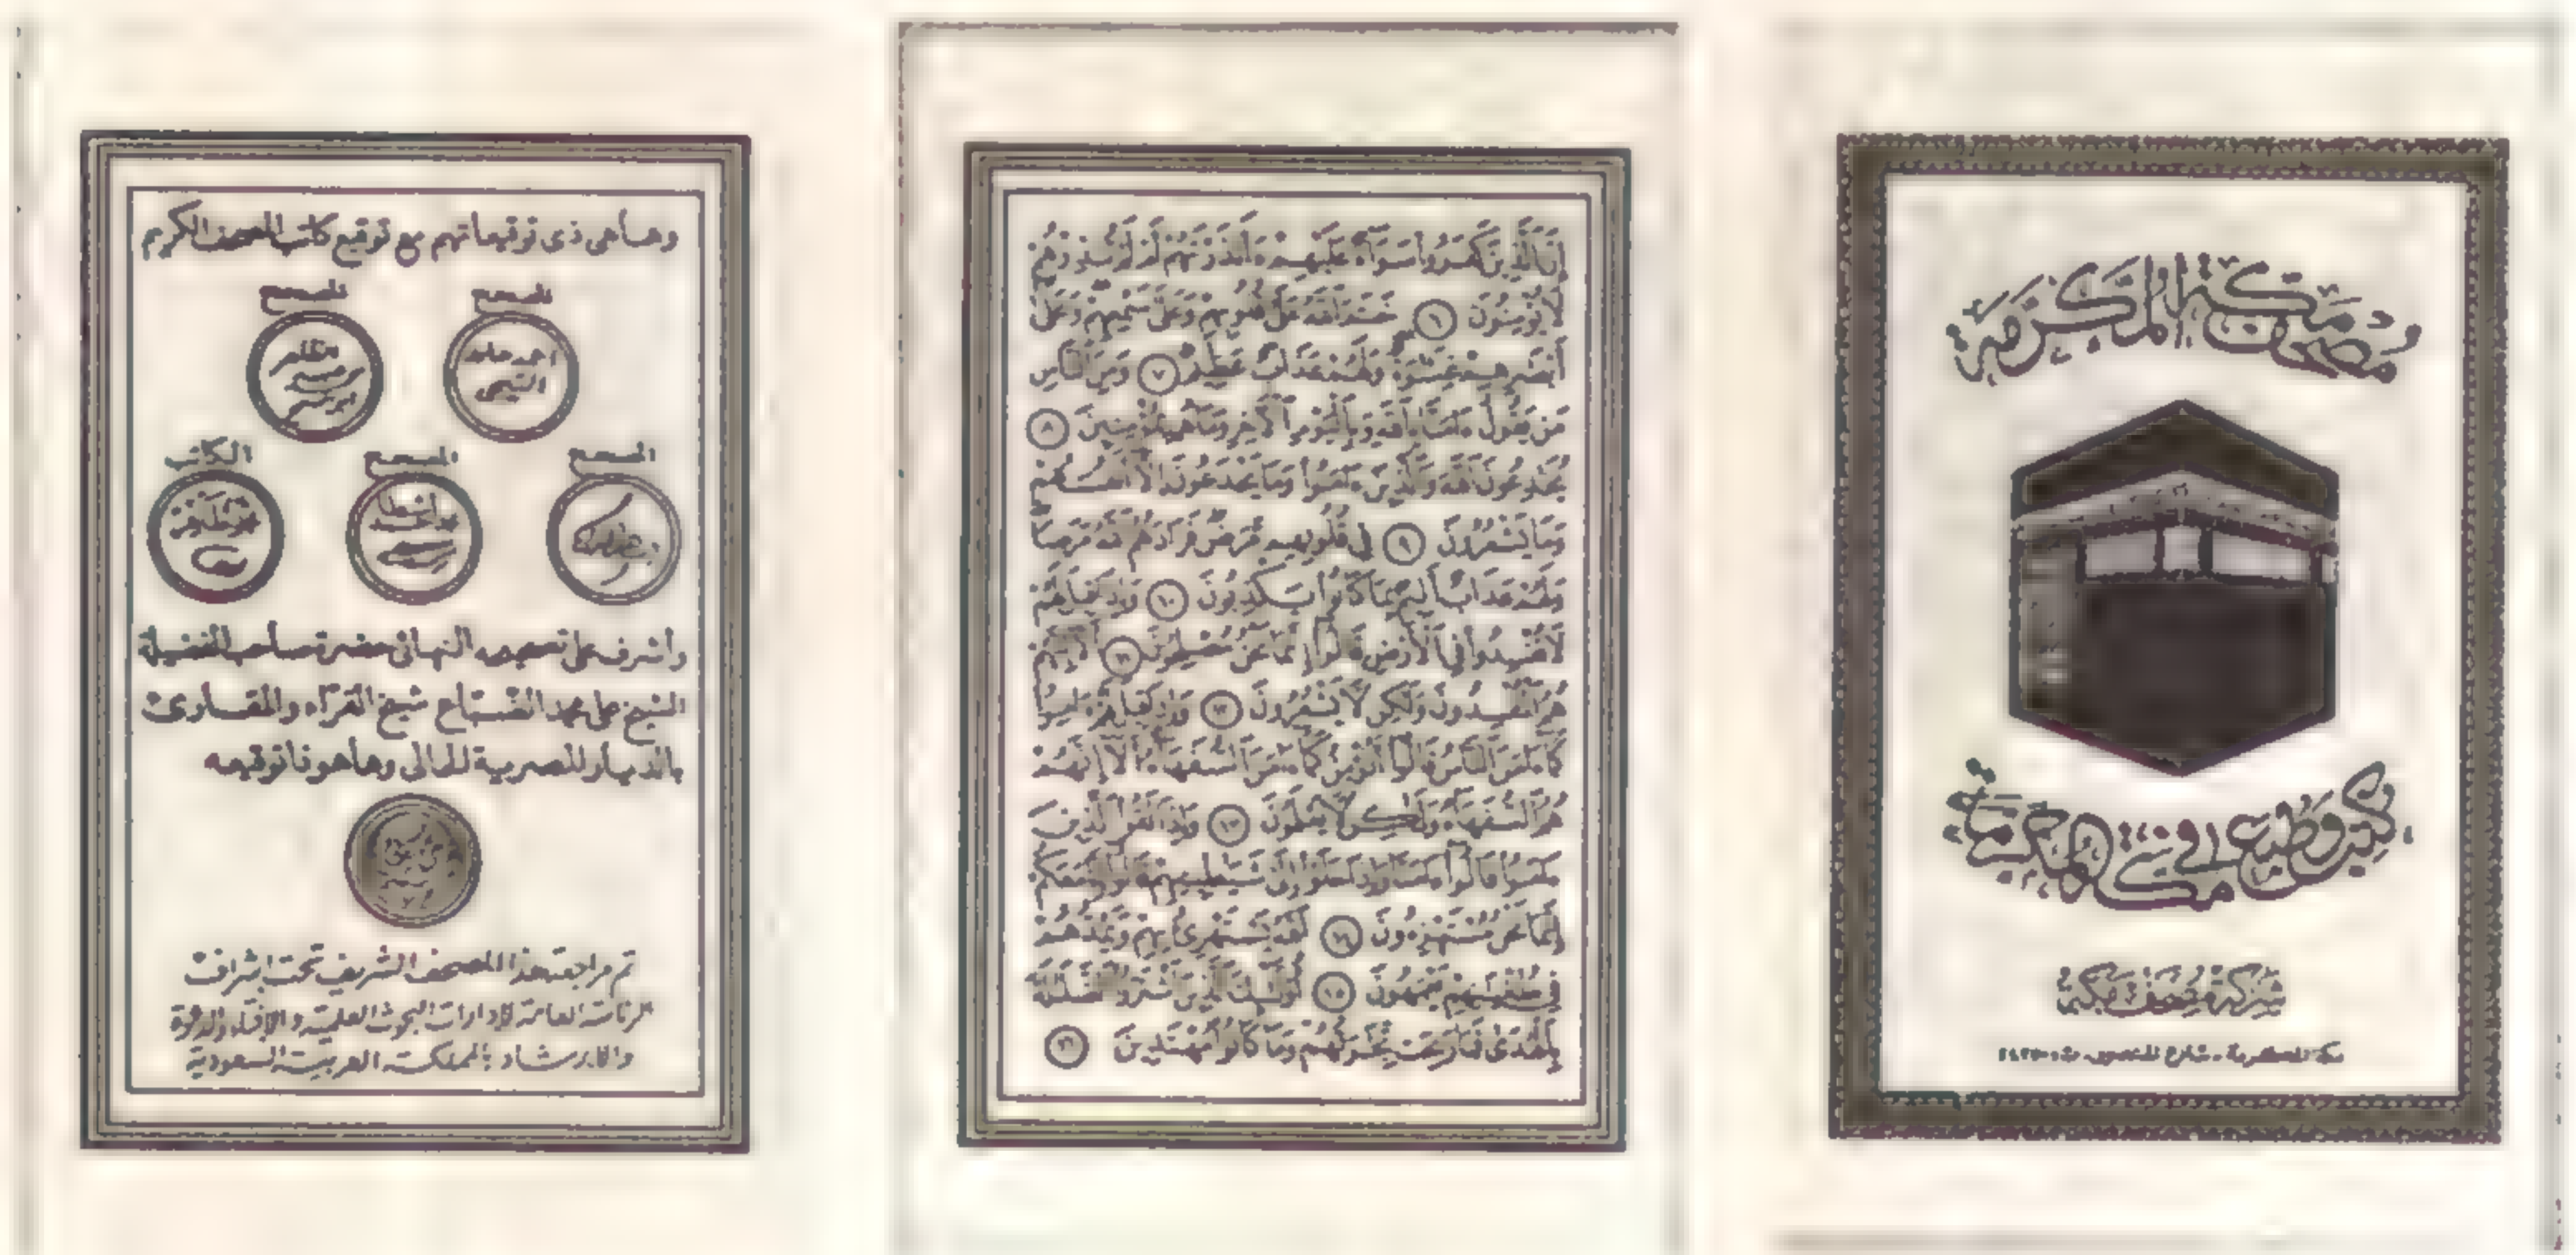 مصحف مكة المكرمة
كتب وطبع في مكة المكرمة
شركة مصحف مكة
إِنَّ ٱلَّذِينَ كَفَرُوا۟ سَوَآءٌ عَلَيْهِمْ ءَأَنذَرْتَهُمْ أَمْ لَمْ تُنذِرْهُمْ
لَا يُؤْمِنُونَ ٦ خَتَمَ ٱللَّهُ عَلَىٰ قُلُوبِهِمْ وَعَلَىٰ سَمْعِهِمْ وَعَلَىٰٓ
أَبْصَٰرِهِمْ غِشَٰوَةٌ وَلَهُمْ عَذَابٌ عَظِيمٌ ٧ وَمِنَ ٱلنَّاسِ
مَن يَقُولُ ءَامَنَّا بِٱللَّهِ وَبِٱلْيَوْمِ ٱلْءَاخِرِ وَمَا هُم بِمُؤْمِنِينَ ٨
يُخَٰدِعُونَ ٱللَّهَ وَٱلَّذِينَ ءَامَنُوا۟ وَمَا يَخْدَعُونَ إِلَّآ أَنفُسَهُمْ
وَمَا يَشْعُرُونَ ٩ فِى قُلُوبِهِم مَّرَضٌ فَزَادَهُمُ ٱللَّهُ مَرَضًا
وَلَهُمْ عَذَابٌ أَلِيمٌۢ بِمَا كَانُوا۟ يَكْذِبُونَ ١٠ وَإِذَا قِيلَ لَهُمْ
لَا تُفْسِدُوا۟ فِى ٱلْأَرْضِ قَالُوٓا۟ إِنَّمَا نَحْنُ مُصْلِحُونَ ١١ أَلَآ إِنَّهُمْ
هُمُ ٱلْمُفْسِدُونَ وَلَٰكِن لَّا يَشْعُرُونَ ١٢ وَإِذَا قِيلَ لَهُمْ ءَامِنُوا۟
كَمَآ ءَامَنَ ٱلنَّاسُ قَالُوٓا۟ أَنُؤْمِنُ كَمَآ ءَامَنَ ٱلسُّفَهَآءُ أَلَآ إِنَّهُمْ
هُمُ ٱلسُّفَهَآءُ وَلَٰكِن لَّا يَعْلَمُونَ ١٣ وَإِذَا لَقُوا۟ ٱلَّذِينَ
ءَامَنُوا۟ قَالُوٓا۟ ءَامَنَّا وَإِذَا خَلَوْا۟ إِلَىٰ شَيَٰطِينِهِمْ قَالُوٓا۟ إِنَّا مَعَكُمْ
إِنَّمَا نَحْنُ مُسْتَهْزِءُونَ ١٤ ٱللَّهُ يَسْتَهْزِئُ بِهِمْ وَيَمُدُّهُمْ
فِى طُغْيَٰنِهِمْ يَعْمَهُونَ ١٥ أُو۟لَٰٓئِكَ ٱلَّذِينَ ٱشْتَرَوُا۟ ٱلضَّلَٰلَةَ
بِٱلْهُدَىٰ فَمَا رَبِحَت تِّجَٰرَتُهُمْ وَمَا كَانُوا۟ مُهْتَدِينَ ١٦
وها هى ذى توقيعاتهم مع توقيع كاتب المصحف الكريم
المصحح
المصحح
احمد حامد
التيجى
المصحح
المصحح
الكاتب
محمد طاهر
وأشرف على تصحيحه النهائى حضرة صاحب الفضيلة
الشيخ على محمد الضباع شيخ القراء والمقارئ
بالديار المصرية الحالى وها هو ذا توقيعه
تم مراجعة هذا المصحف الشريف تحت إشراف
الرئاسة العامة لإدارات البحوث العلمية والإفتاء والدعوة
والإرشاد بالمملكة العربية السعودية